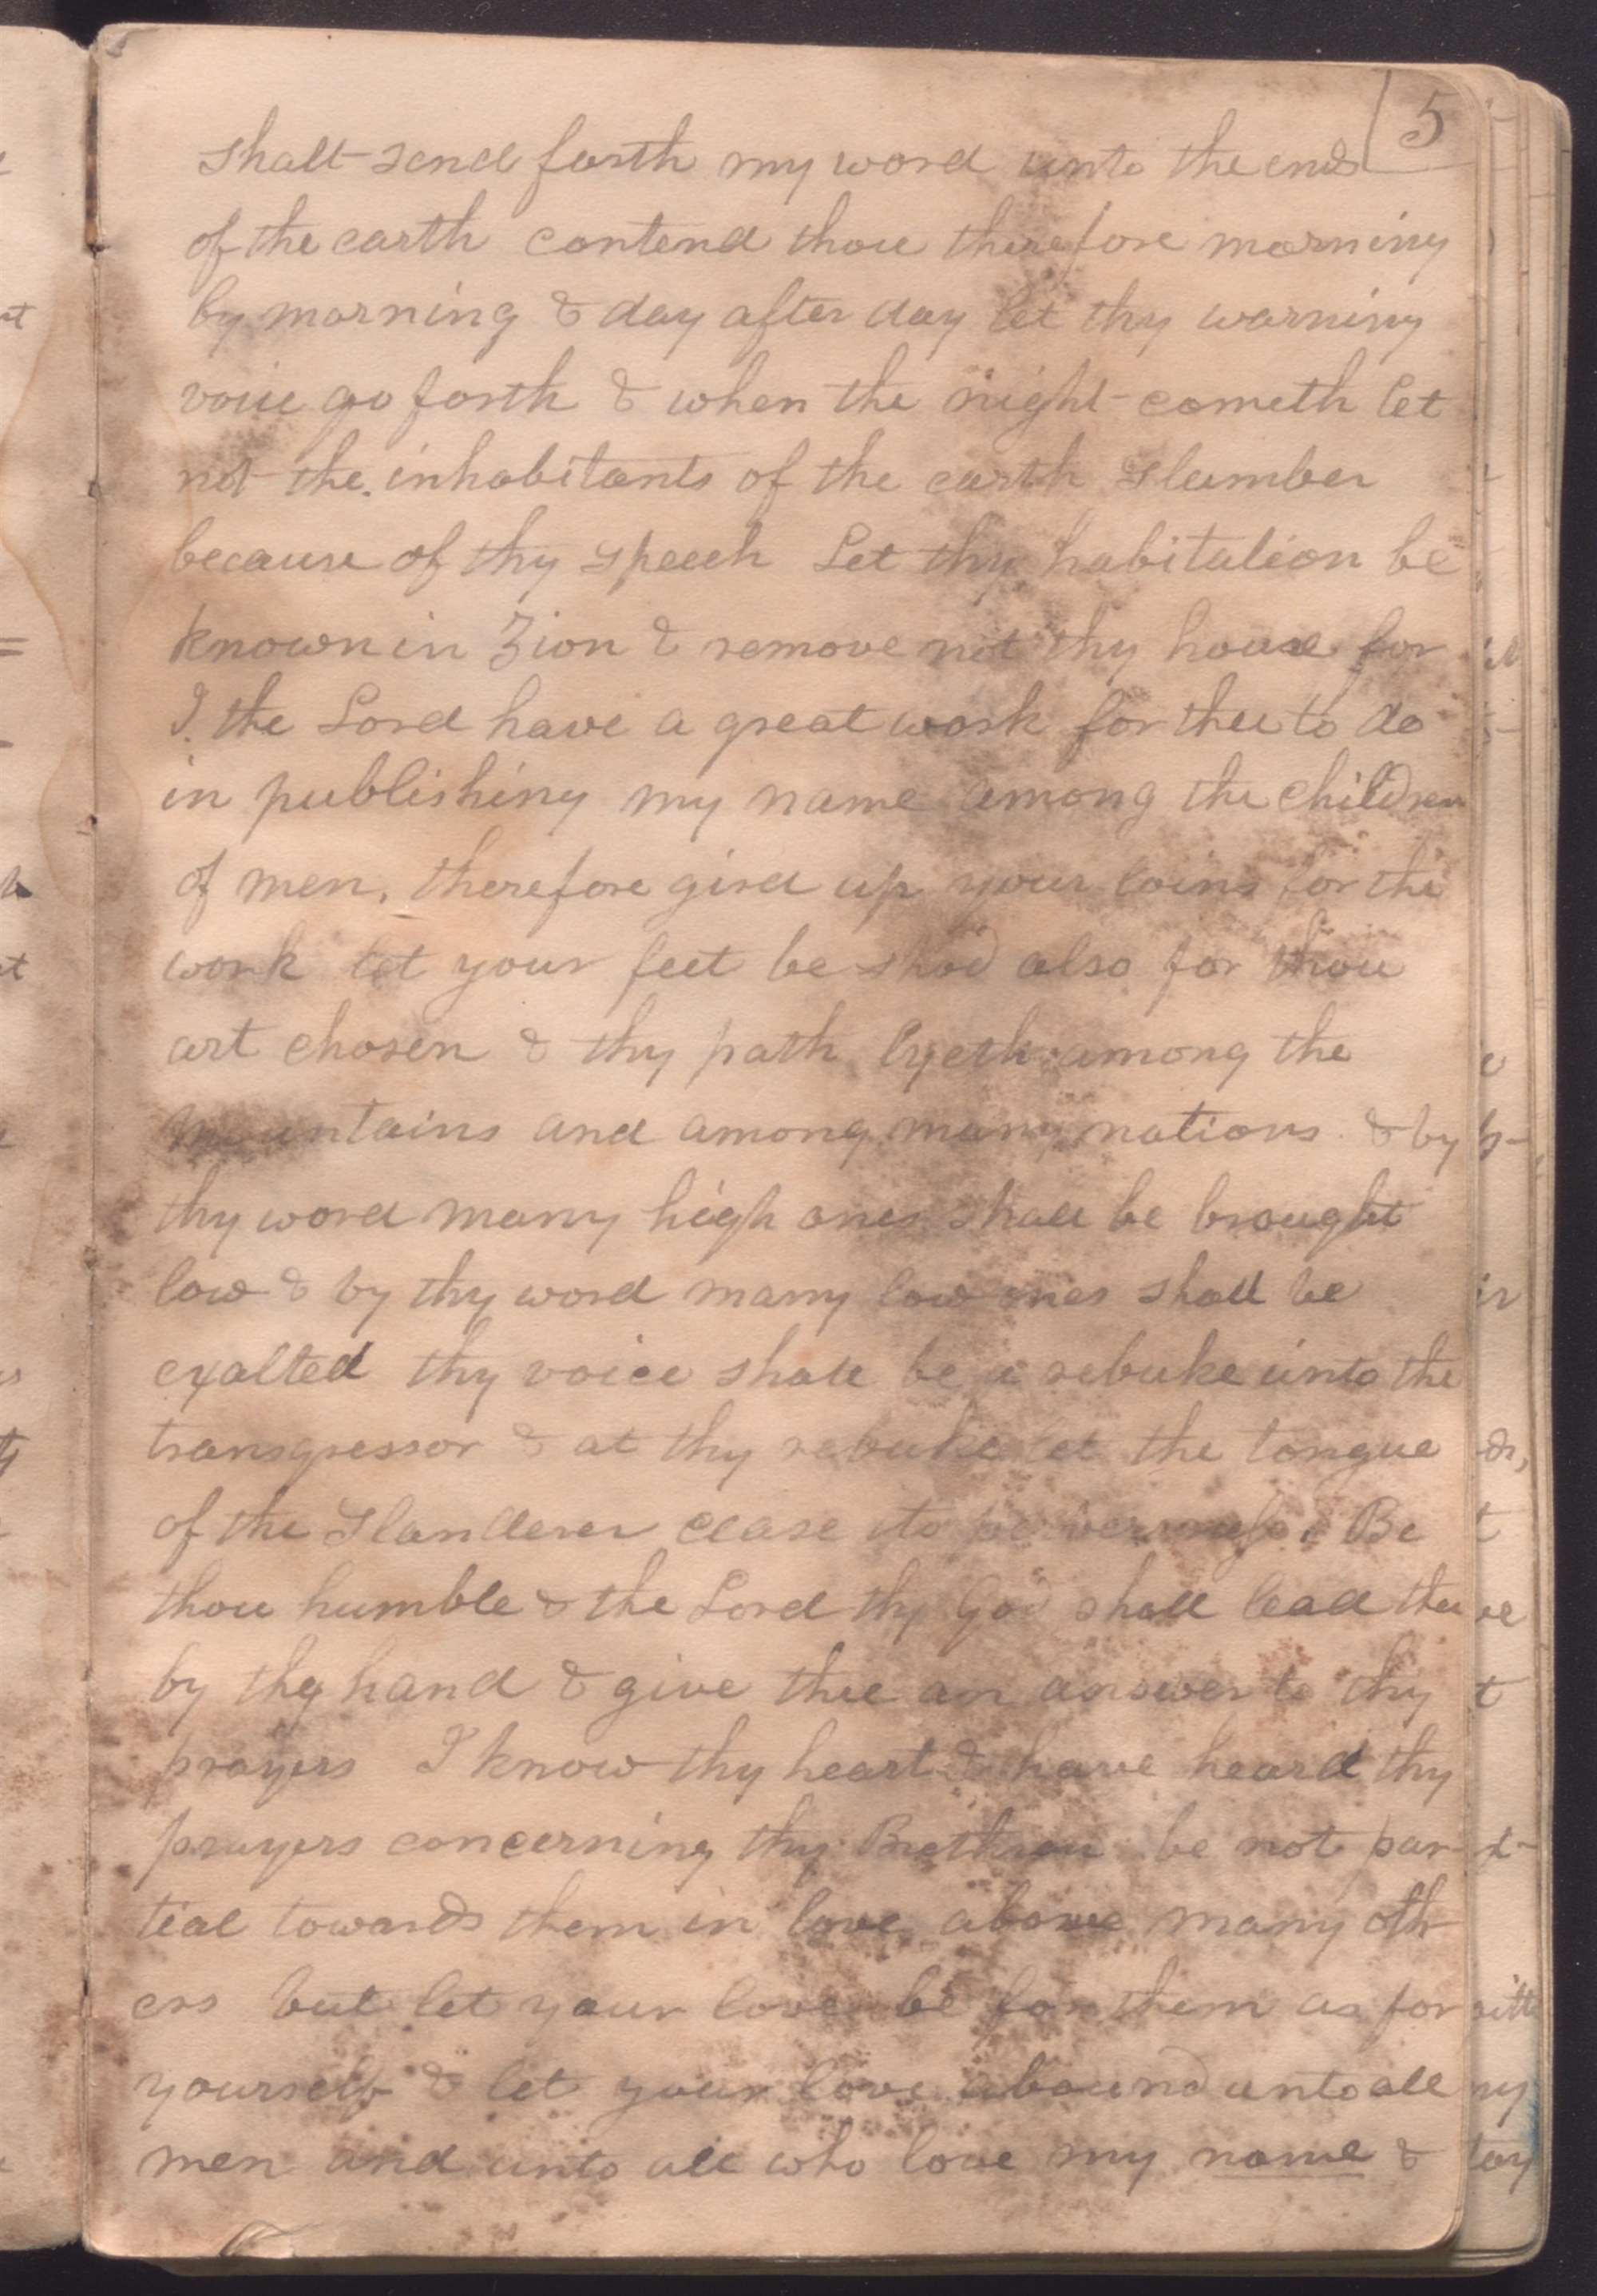 5
shalt send forth my word unto the ends
of the earth contend thou therefore morning
by morning & day after day let thy warning
voice go forth & when the night cometh let
not the inhabitants of the earth slumber
because of thy speech Let thy habitation be
known in Zion & remove not thy house for
I the Lord have a great work for thee to do
in publishing my name among the children
of men, therefore gird up your loins for the
work let your feet be shod also for thou
art chosen & thy path lyeth among the
mountains and among many nations & by
thy word many high ones shall be brought
low & by thy word many low ones shall be
exalted thy voice shall be a rebuke unto the
transgressor & at thy rebuke let the tongue
of the slanderer cease its perverseness. Be
thou humble & the Lord thy God shall lead thee
by thy hand & give thee an answer to thy
prayers I know thy heart & have heard thy
prayers concerning thy Brethren be not par-
tial towards them in love above many oth
ers but let your love be for them as for
yourself & let your love abound unto all
men and unto all who love my name &